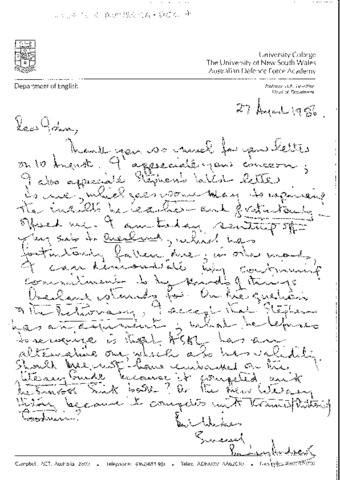 University College
The University of New South Wales
Australian Defence Force Academy
Department of English
Head of Department
27 August 1986.
Dear John,
Thank you so much for your letter
of 10 August. I appreciate your concern;
I also appreciate Stephen's latest letter
to me, which goes some way to repairing
the insults he earlier and gratuitously
offered me. I am today sending off
my sub to Overland, which has
fortuitously fallen due; in other words,
I can demonstrate my continued
commitment to the kinds of things
Overland stands for. On the question
of the Dictionary, I accept that Stephen
has an argument; what he refuses
to recognise is that ASAL has an
alternative one which also has validity.
Should we not have embarked on the
Literary Guide because it competed with
book? Or the new Literary
History because it competes with
Goodwin?
Best wishes
Sincerely
Campbell, ACT, Australia 2600 • Telephone: • Telex: ADFADM AA62030 •